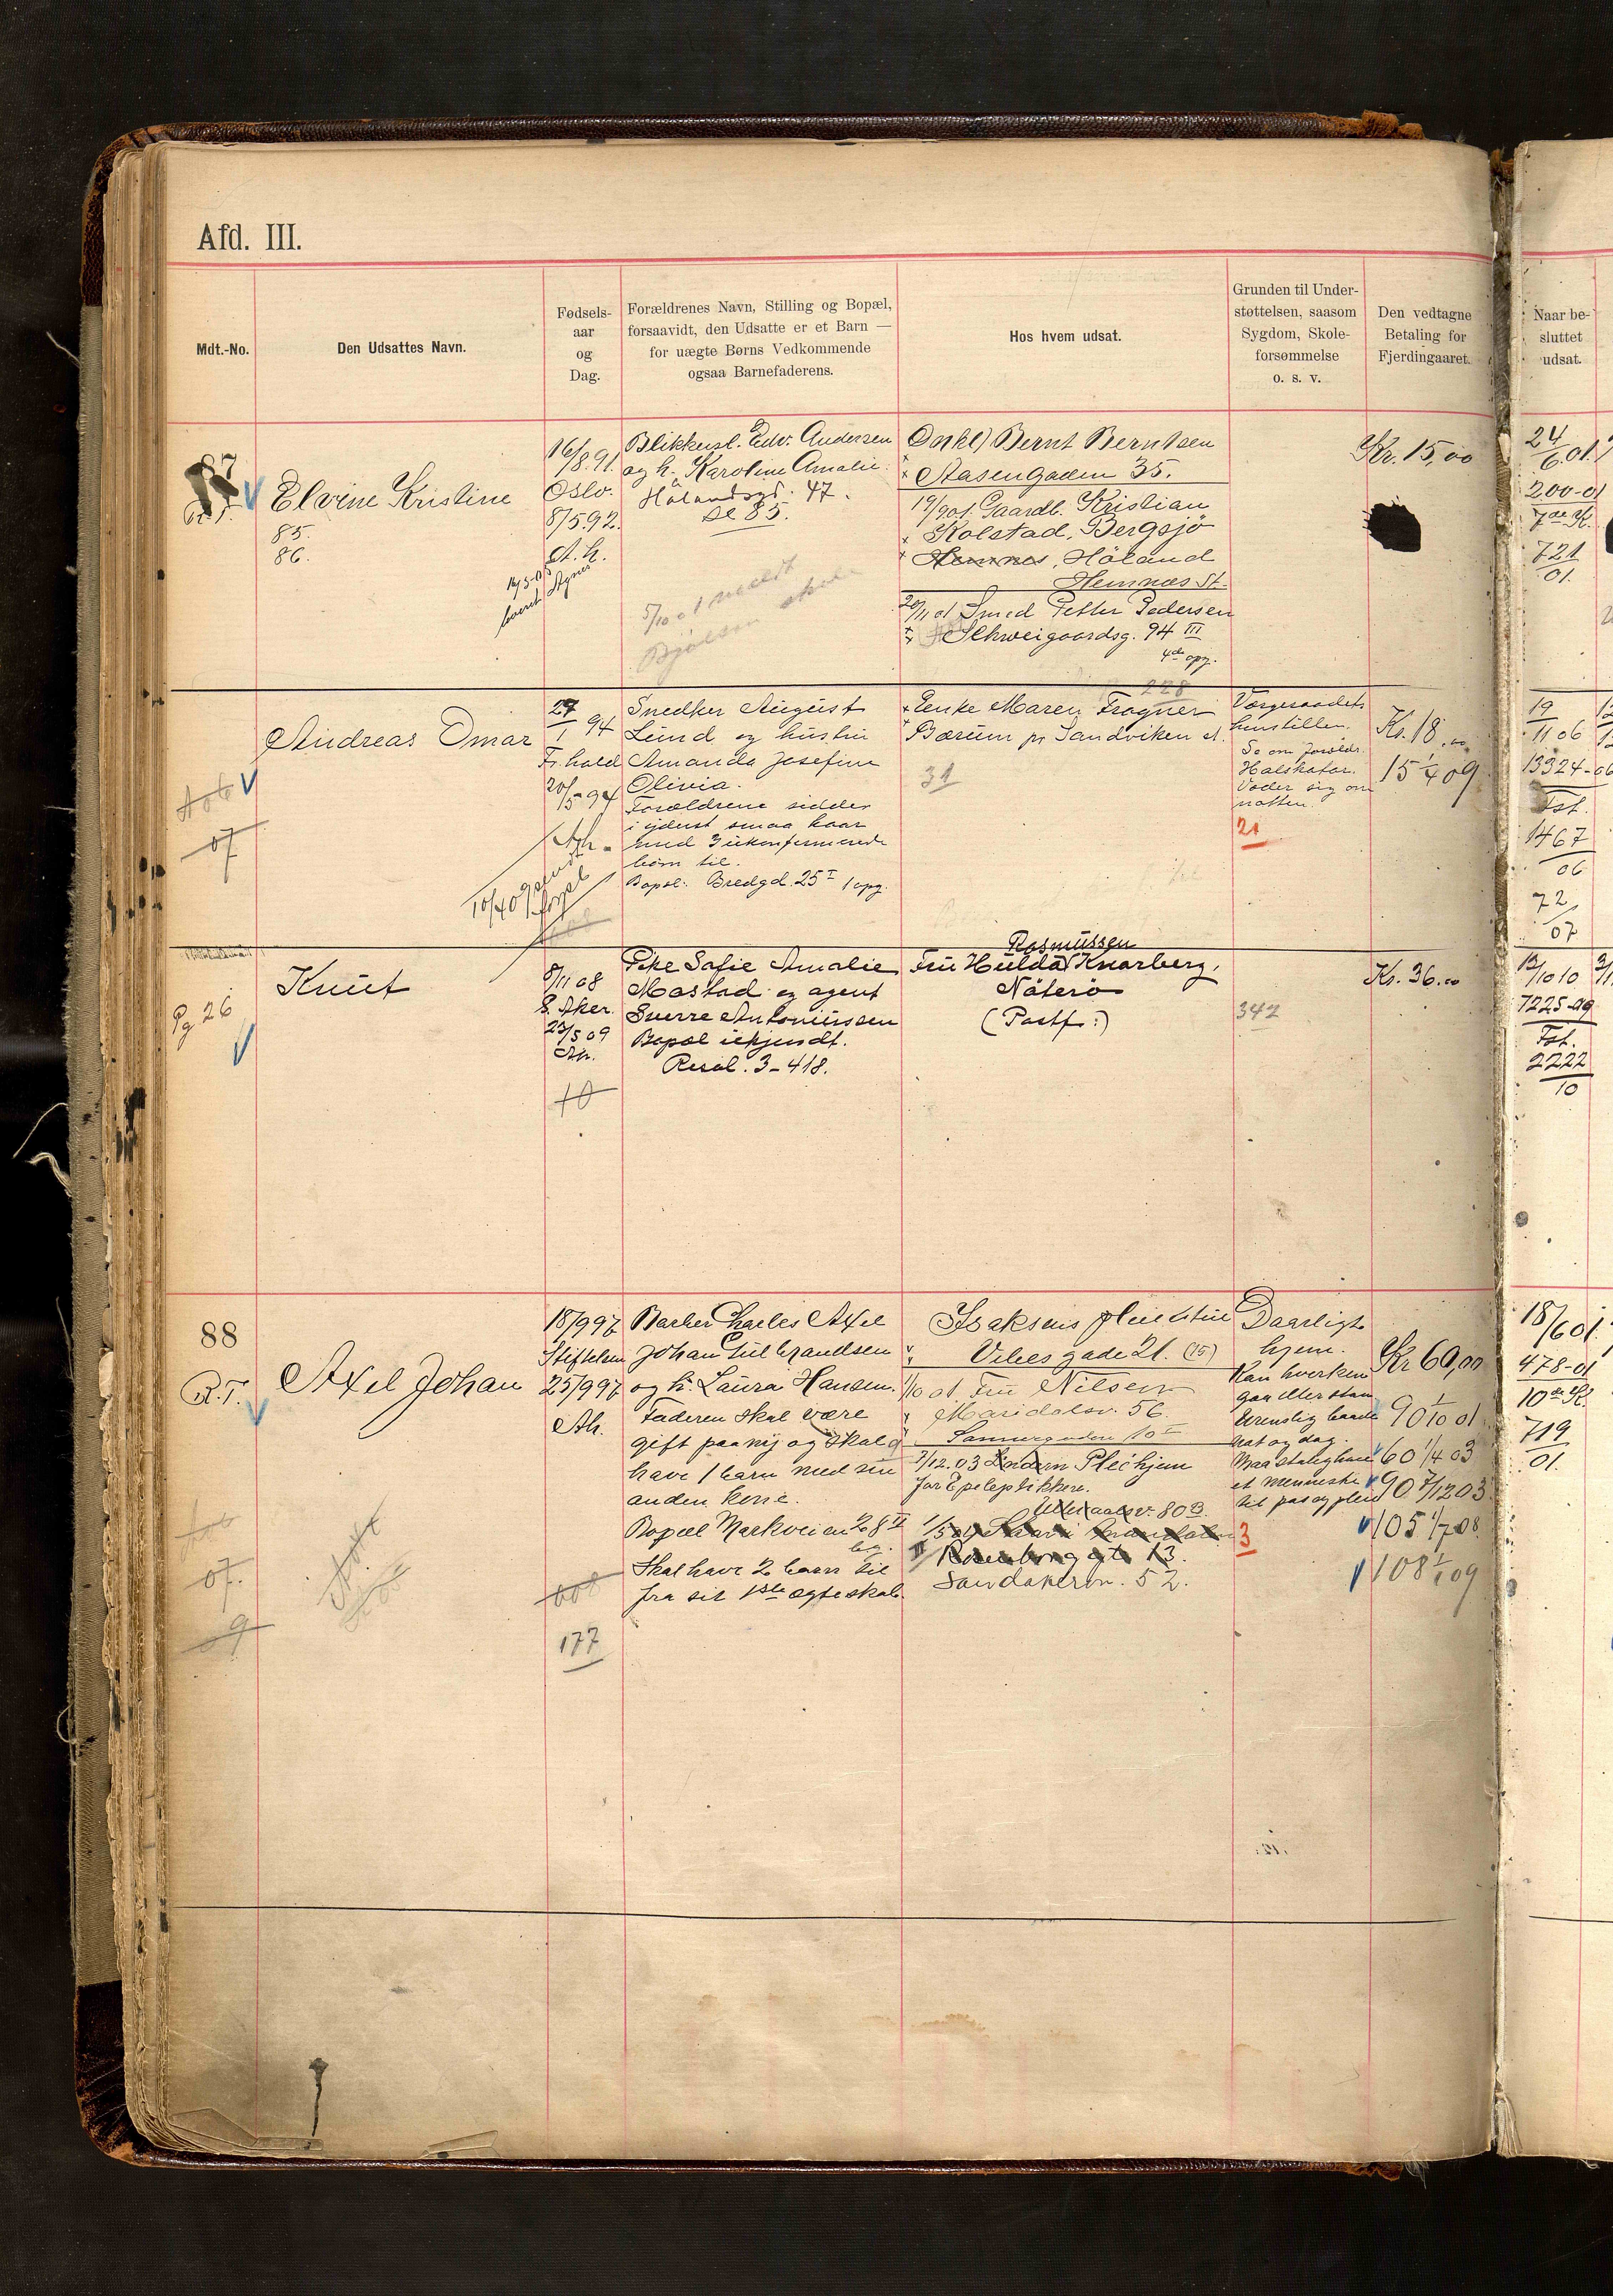 Afd. III.
Mdt.-No.
Den Udsattes Navn.
Fødsels-
aar
og
Dag.
Forældrenes Navn, Stilling og Bopæl,
forsaavidt, den Udsatte er et Barn —
for uægte Børns Vedkommende
ogsaa Barnefaderens.
Hos hvem udsat.
Grunden til Under-
støttelsen, saasom
Sygdom, Skole-
forsømmelse
o. s. v.
Den vedtagne
Betaling for
Fjerdingaaret.
Naar be-
sluttet
udsat.
87
Elvine Kristine
85.
86.
16/8.91.
Oslo.
8/5.92.
A. h.
Blikkensl. Edv. Andersen
og h. Karoline Amalie.
Hölandsgd. 47.
Se 85.
5/10 01 meldt
Bjølsen skole
Onkel Bernt Berntsen
Aasengaden 35.
19/9 01. Gaardb. Kristian
Kolstad, Bergsjö
Hemnes, Höland
Hemnæs St.
20/11 01 Smed Petter Pedersen
Schweigaardsg. 94 III
4de opg.
Kr. 15,00
24/6.01.
200-01
7de K.
721
01.
Andreas Omar
07
27/1 94
20/5 94
Snedker August
Lund og hustru
Amanda Josefine
Olivia.
Forældrene sidder
i yderst smaa kaar
med 3 ukonfirmerede
børn til.
Bopæl: Bredgd. 25 I 1 opg.
228
Enke Maren Frogner
Bærum pr. Sandviken st.
31
Værgeraadets
henstillen.
Se om foreldr.
Halskatar.
Væder sig om
natten.
21
Kr. 18.00
15 1/4 09
19/11 06
13324-06
Fat.
1467
06
72
07
Knut
Pg 26
8/11 08
V. Aker.
23/5 09
Ah.
10
Pike Sofie Amalie
Mostad og agent
Sverre Antoniussen
Bopæl ukjendt.
Resol. 3-418.
Rasmussen
Fru Hulda Knarberg,
Nøterø
(Postf:)
342
Kr. 36.00
13/10 10
7225-09
Fat.
2222
10
88
R.T.
Axel Johan
07.
09
18/9 97
Stiftelsen
25/9 97
Ah.
008
177
Barber Charles Axel
Johan Gulbrandsen
og h. Laura Hansen.
Faderen skal være
gift paany og skal
have 1 barn med sin
anden kone.
Bopæl Markveien 28 II
Skal have 2 barn til
fra sit 1ste ægteskab.
Isaksens pleiestue
Vibesgade 21. (15)
1/10 01 Fru Nilsen
Maridalsv. 56.
Sannergaden 10
7/12.03 Lindern Pleiehjem
for Epileptikkere.
Ullevaalsv. 80 B.
Rosenborg gt. 13.
Sandakerv. 52.
Daarligt
hjem.
Kan hverken
gaa eller staa
Urenslig baade
nat og dag.
Maa stadig have
et menneske
til pas og pleie
3
Kr 60,00
90 1/10 01
60 1/4 03
90 7/12 03
105 1/7 08.
108 1/1 09
18/6 01.
478-01
10de K.
719
01.